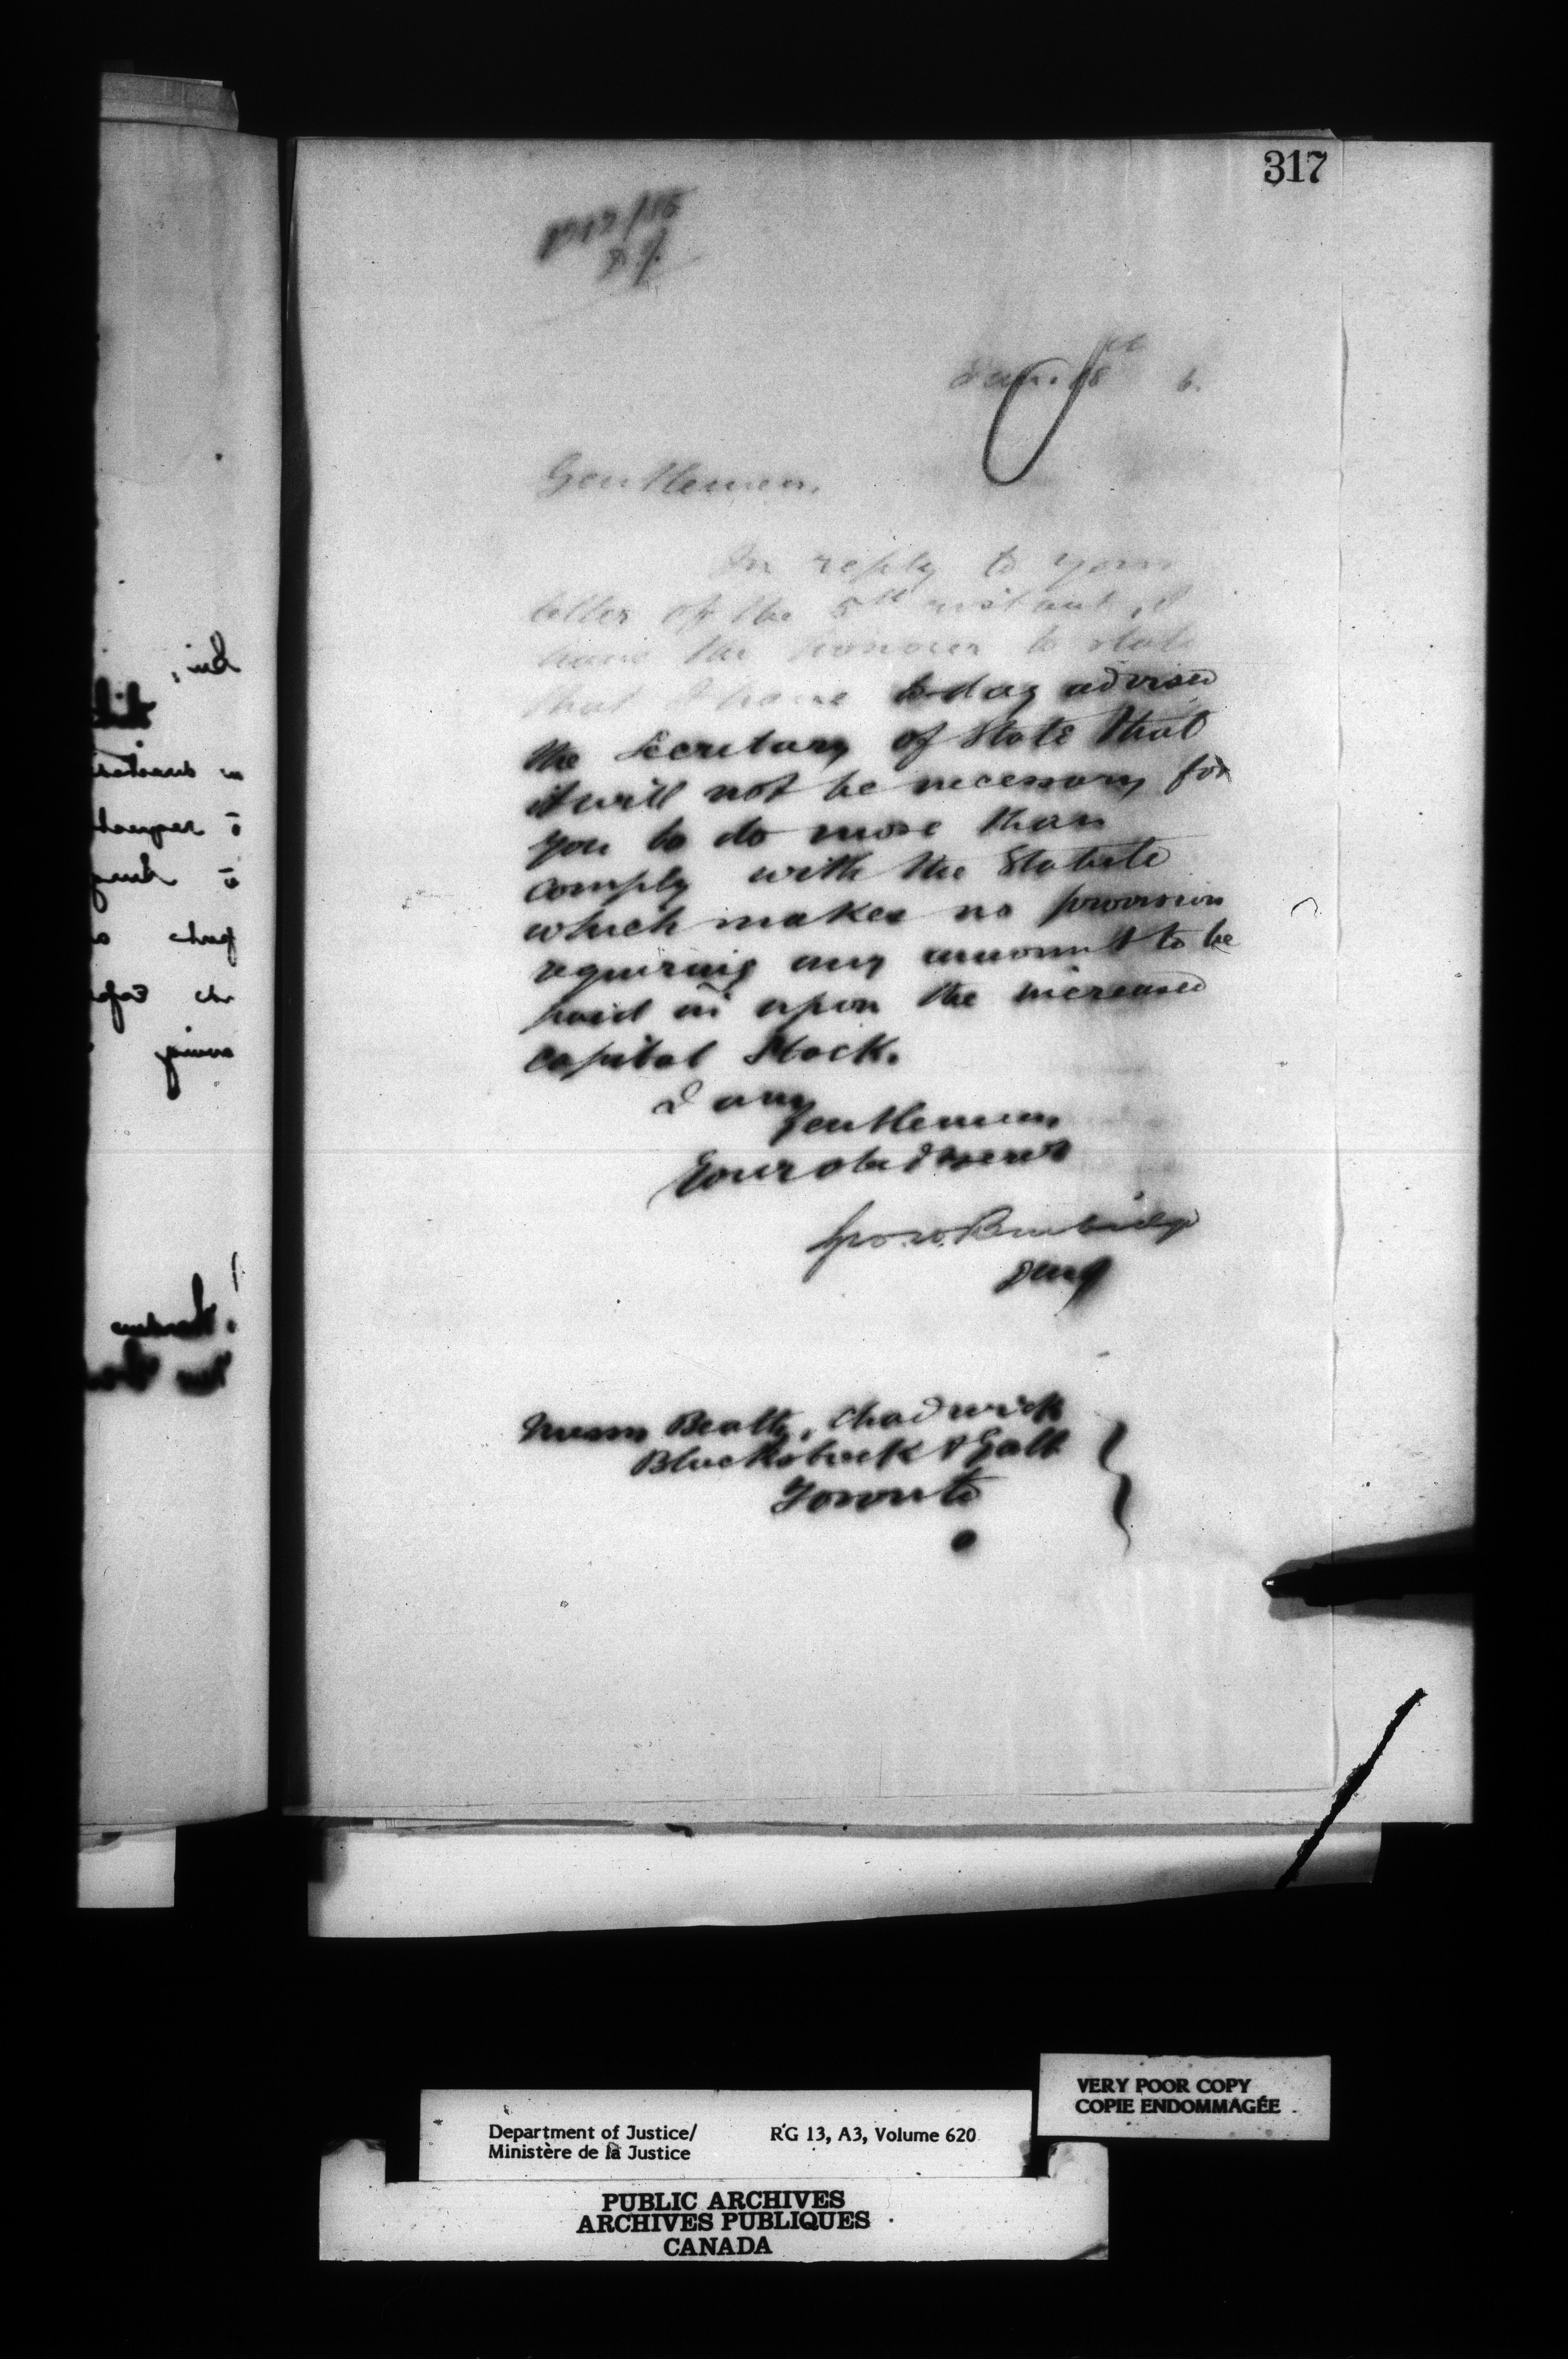 317
Jan. 18th 6.
Gentlemen,
In reply to your
letter of the 5th instant, I
have the honour to state
that I have to day advised
the Secretary of State that
it will not be necessary for
you to do more than
comply with the Statute
which makes no provision
requiring any amount to be
paid in upon the increased
capital Stock.
I am
Gentlemen
Your obed servt
Geo. W. Burbidge
DMJ
Messrs Beatty, Chadwick
Blackstock & Galt
Toronto
VERY POOR COPY
COPIE ENDOMMAGÉE
Department of Justice/ RG 13, A3, Volume 620
Ministère de la Justice
PUBLIC ARCHIVES
ARCHIVES PUBLIQUES
CANADA